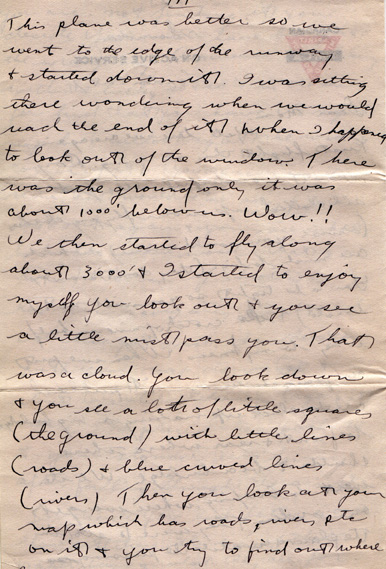 III
This plane was better so we
went to the edge of the runway
& started down it. I was sitting
there wondering when we would
reach the end of it when I happened
to look out of the window. There
was the ground only it was
about 1000' below us. Wow!!
We then started to fly along
about 3000' & I started to enjoy
myself you look out & you see
a little mist pass you. That
was a cloud. You look down
& you see a lot of little squares
(the ground) with little lines
(roads) & blue curved lines
(rivers) Then you look at your
map which has roads, rivers etc
on it & you try to find out where